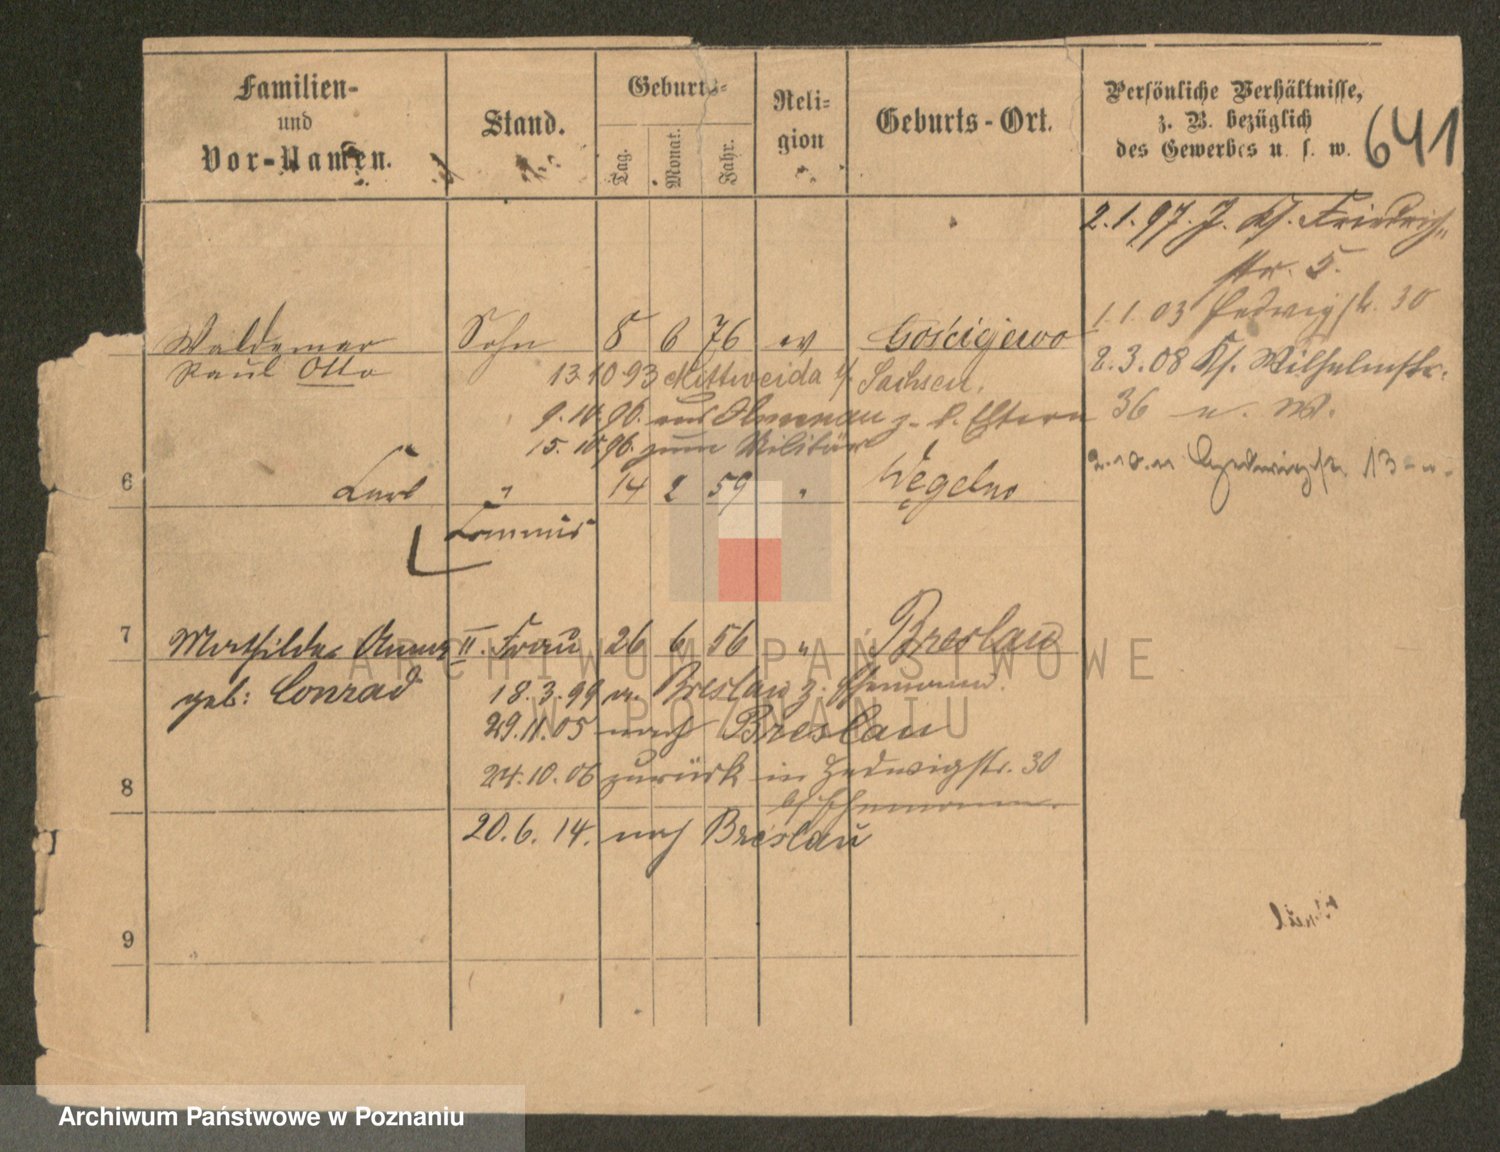 Familien-
und
Vor-Namen.
Stand.
Geburts-
Tag.
Monat.
Jahr.
Reli-
gion
Geburts-Ort.
Persönliche Verhältnisse,
z. B. bezüglich
des Gewerbes u. s. w.
641
2.1.97. J. Ks. Friedrich-
str. 5.
1.1.03 Hedwigstr. 30
2.3.08 Ks. Wilhelmstr.
36 u. W.
Hedwigstr. 13
Waldemar Sohn 8 6 76 ev Gościejewo
Paul Otto
13.10.93 Mittweida i/ Sachsen.
9.10.96. aus z. d. Eltern
15.10.96. zum Militär
6 Karl " 14 2 59 " Węgelno
Commis
7 Mathilde Anna II. Frau 26 6 56 " Breslau
geb: Conrad
18.3.99 v. Breslau z. Ehemann.
29.11.05 nach Breslau
24.10.06 zurück in Hedwigstr. 30
b/ Ehemann.
8
20.6.14. nach Breslau
9
ARCHIWUM PAŃSTWOWE
W POZNANIU
Archiwum Państwowe w Poznaniu